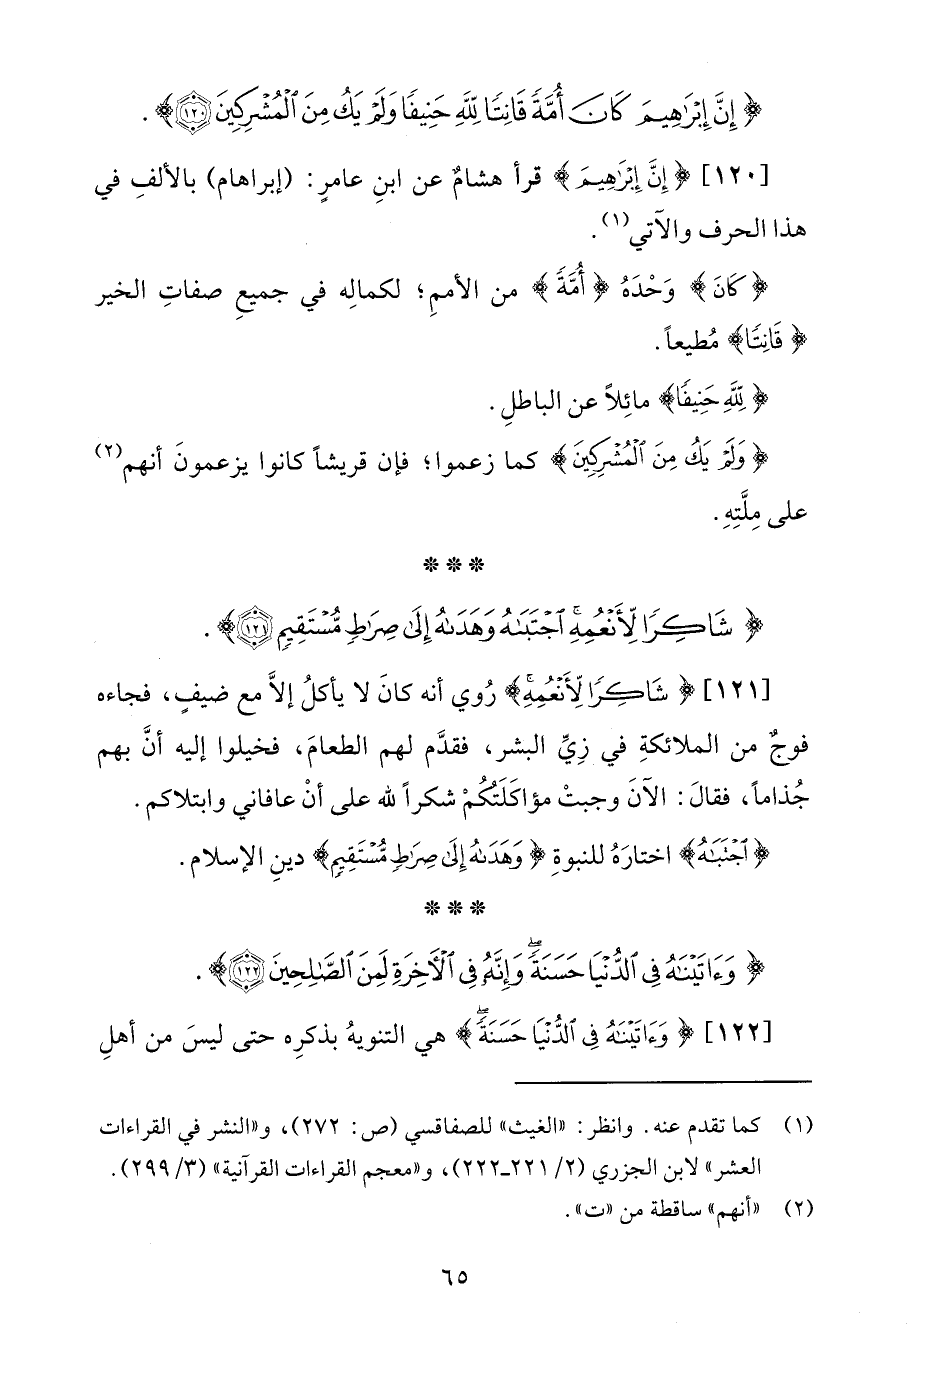 ﴿ إِنَّ إِبْرَٰهِيمَ كَانَ أُمَّةً قَانِتًا لِّلَّهِ حَنِيفًا وَلَمْ يَكُ مِنَ ٱلْمُشْرِكِينَ ١٢٠ ﴾ .
[١٢٠] ﴿ إِنَّ إِبْرَٰهِيمَ ﴾ قرأ هشامٌ عن ابنِ عامرٍ: (إبراهام) بالألفِ في
هذا الحرف والآتي(١).
﴿ كَانَ ﴾ وَحْدَهُ ﴿ أُمَّةً ﴾ من الأممِ؛ لكمالِه في جميعِ صفاتِ الخير
﴿ قَانِتًا ﴾ مُطيعاً.
﴿ لِّلَّهِ حَنِيفًا ﴾ مائِلاً عن الباطلِ.
﴿ وَلَمْ يَكُ مِنَ ٱلْمُشْرِكِينَ ﴾ كما زعموا؛ فإن قريشاً كانوا يزعمونَ أنهم(٢)
على مِلَّتِهِ.
* * *
﴿ شَاكِرًا لِّأَنْعُمِهِ ۚ ٱجْتَبَىٰهُ وَهَدَىٰهُ إِلَىٰ صِرَٰطٍ مُّسْتَقِيمٍ ١٢١ ﴾ .
[١٢١] ﴿ شَاكِرًا لِّأَنْعُمِهِ ۚ ﴾ رُوي أنه كانَ لا يأكلُ إلاَّ مع ضيفٍ، فجاءه
فوجٌ من الملائكةِ في زِيِّ البشر، فقدَّم لهم الطعامَ، فخيلوا إليه أنَّ بهم
جُذاماً، فقالَ: الآنَ وجبتْ مؤاكَلَتُكُمْ شكراً لله على أنْ عافاني وابتلاكم.
﴿ ٱجْتَبَىٰهُ ﴾ اختارَهُ للنبوةِ ﴿ وَهَدَىٰهُ إِلَىٰ صِرَٰطٍ مُّسْتَقِيمٍ ﴾ دينِ الإسلام.
* * *
﴿ وَءَاتَيْنَٰهُ فِي ٱلدُّنْيَا حَسَنَةً ۖ وَإِنَّهُۥ فِي ٱلْأَخِرَةِ لَمِنَ ٱلصَّٰلِحِينَ ١٢٢ ﴾ .
[١٢٢] ﴿ وَءَاتَيْنَٰهُ فِي ٱلدُّنْيَا حَسَنَةً ۖ ﴾ هي التنويهُ بذكرِه حتى ليسَ من أهلِ
(١) كما تقدم عنه. وانظر: «الغيث» للصفاقسي (ص: ٢٧٢)، و«النشر في القراءات
العشر» لابن الجزري (٢/ ٢٢١ـ٢٢٢)، و«معجم القراءات القرآنية» (٣/ ٢٩٩).
(٢) «أنهم» ساقطة من «ت».
٦٥